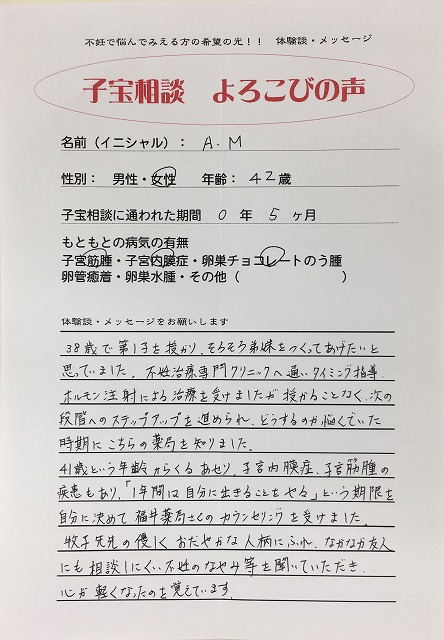 不妊で悩んでみえる方の希望の光！！　体験談・メッセージ
子宝相談　よろこびの声
名前（イニシャル）： A.M
性別：　男性・女性　　年齢： 42歳
子宝相談に通われた期間　0 年　5 ヶ月
もともとの病気の有無
子宮筋腫・子宮内膜症・卵巣チョコレートのう腫
卵管癒着・卵巣水腫・その他（　　　　　　　）
体験談・メッセージをお願いします
38歳で第1子を授かり、そろそろ弟妹をつくってあげたいと
思っていました。不妊治療専門クリニックへ通いタイミング指導、
ホルモン注射による治療を受けましたが授かることなく、次の
段階へのステップアップを進められ、どうするのか悩んでいた
時期にこちらの薬局を知りました。
41歳という年齢からくるあせり、子宮内膜症、子宮筋腫の
疾患もあり、「1年間は自分に出きることをやる」という期限を
自分に決めて福井薬局さんのカウンセリングを受けました。
牧子先生の優しくおだやかな人柄にふれ、なかなか友人
にも相談しにくい不妊のなやみ等を聞いていただき、
心が軽くなったのを覚えています。